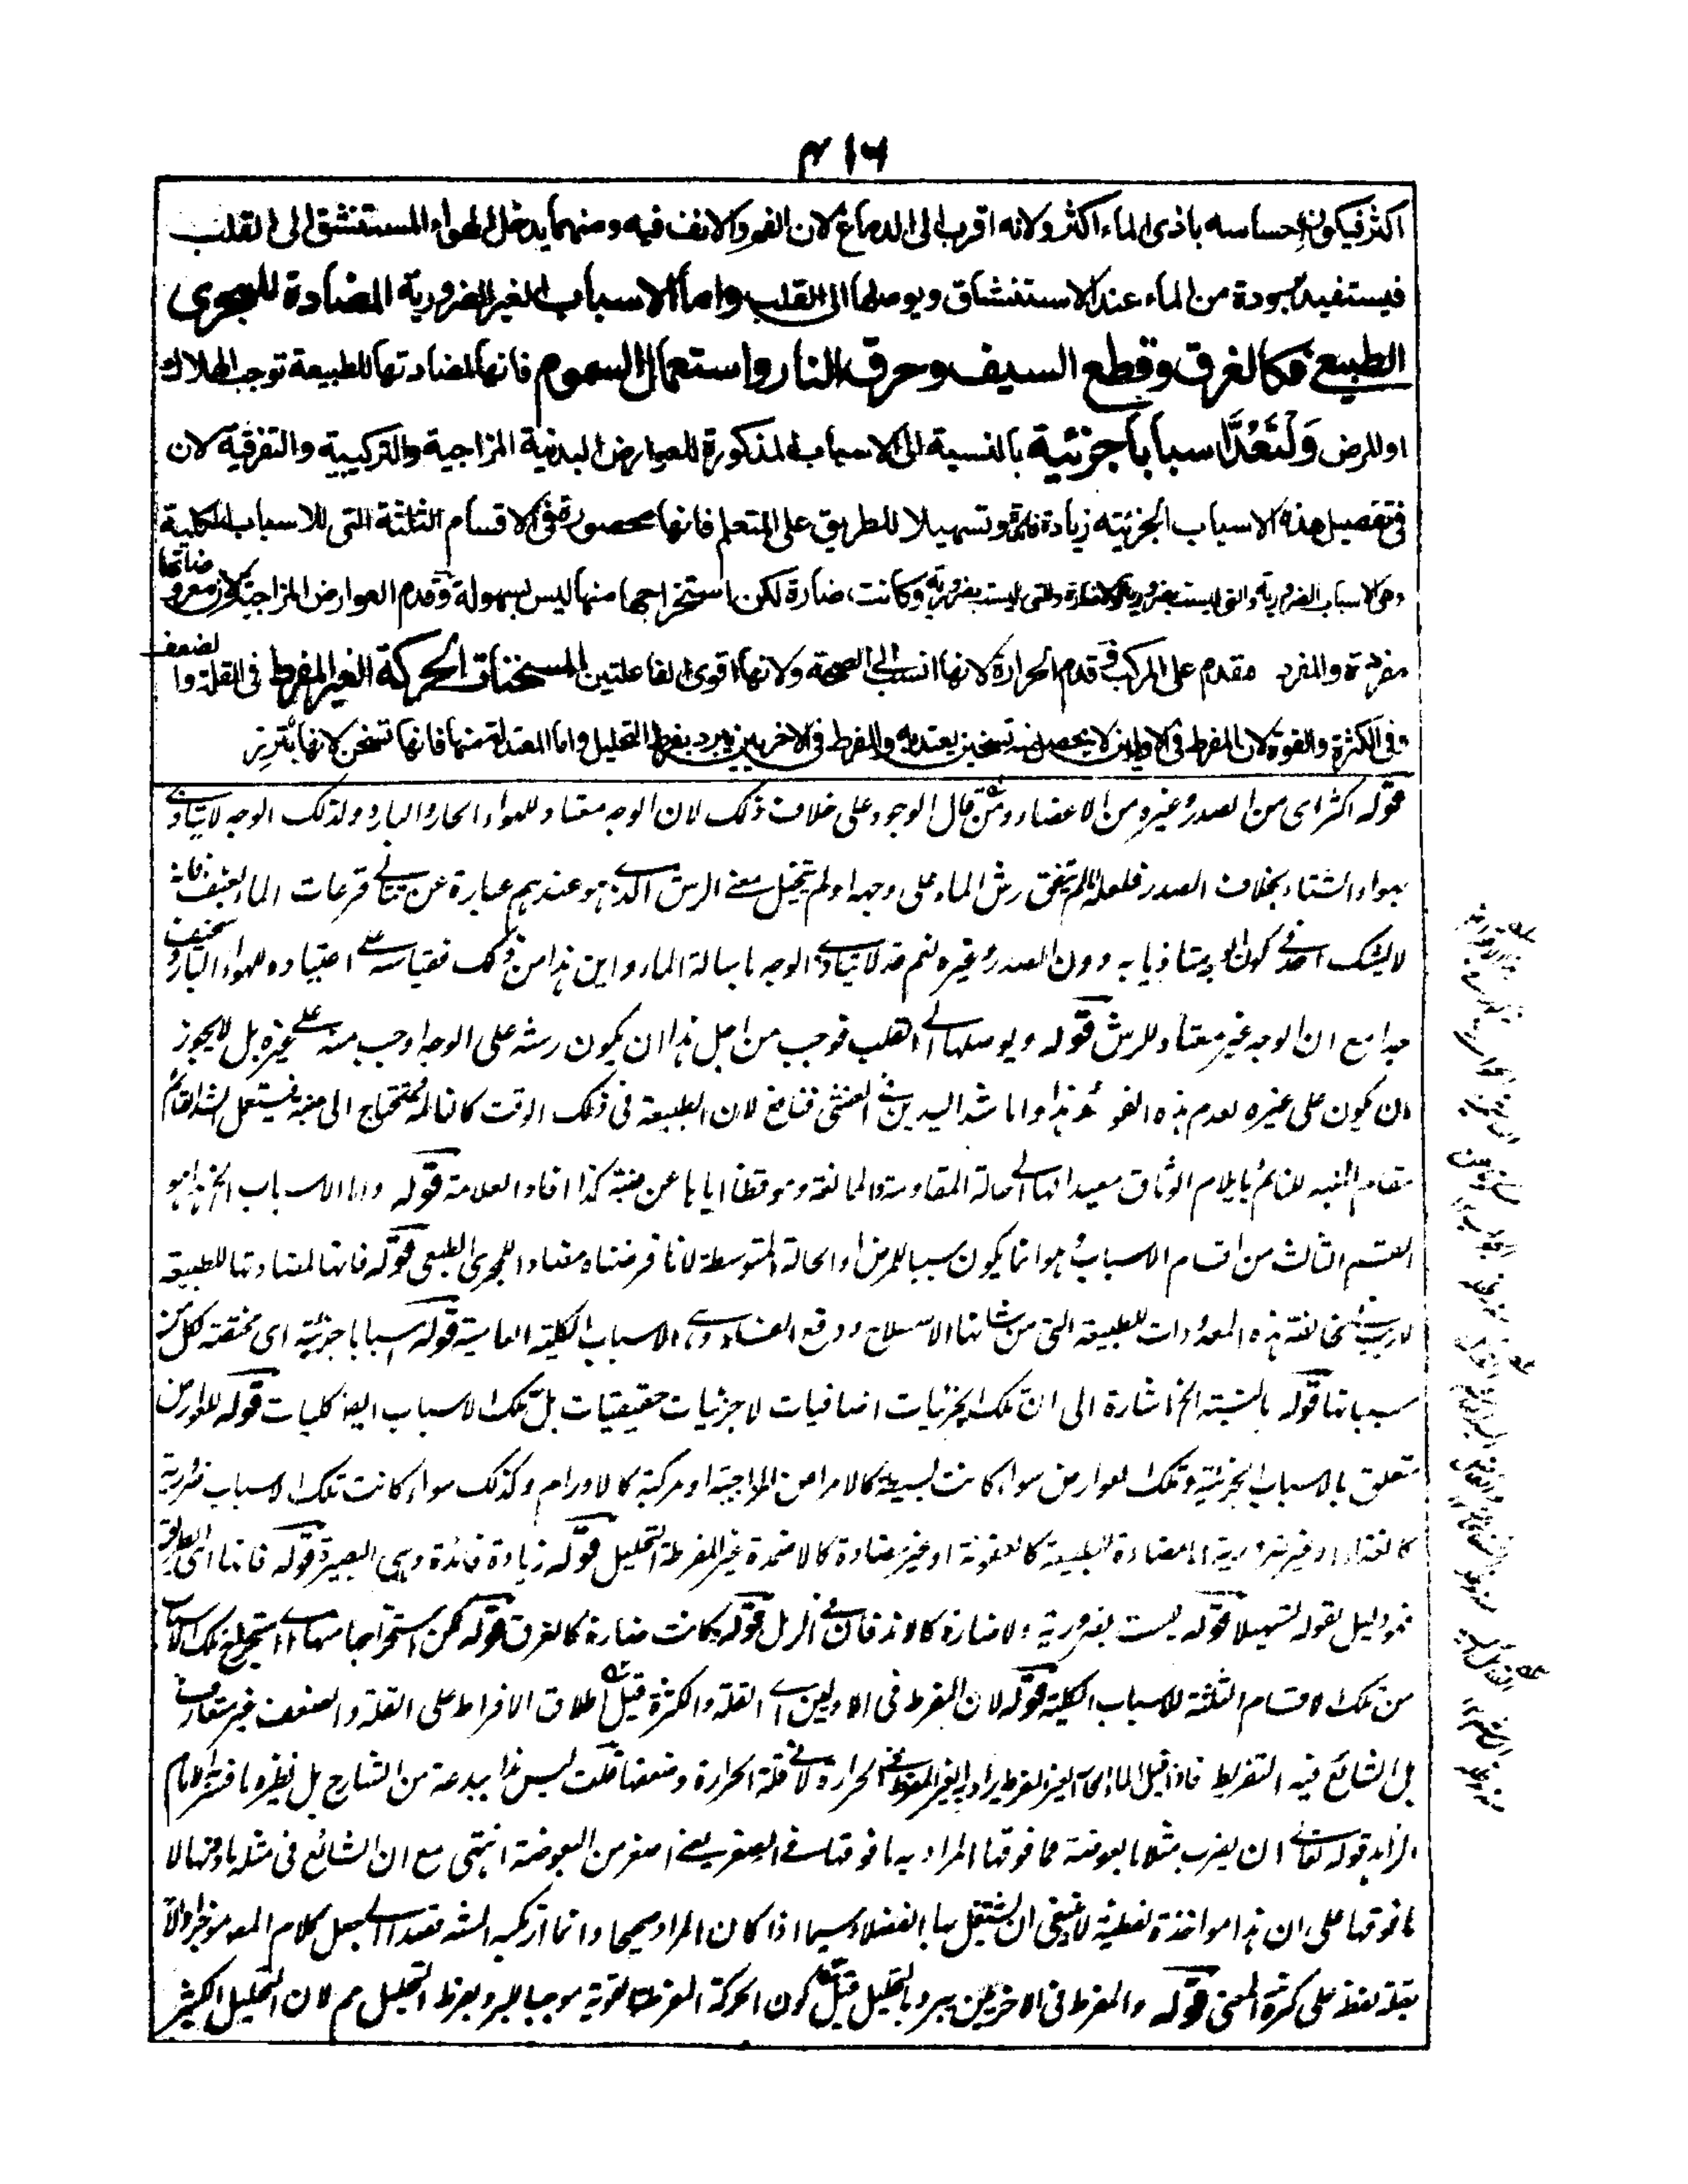 ۴۱۶
اكثر فيكون احساسه باذى الماء اكثر ولانه اقرب الى الدماغ لان الفم والانف فيه ومنهما يدخل الهواء المستنشق الى القلب
فيستفيد برودة من الماء عند الاستنشاق ويوصلها الى القلب واما الاسباب الغير الضرورية المضادة للمجرى
الطبيعى فكالغرق وقطع السيف وحرق النار واستعمال السموم فانها لمضادتها للطبيعة توجب الهلاك
او المرض ولنعد اسبابا جزئية بالنسبة الى الاسباب المذكورة للعوارض البدنية المزاجية والتركيبية والتفرقية لان
فى تفصيل هذه الاسباب الجزئية زيادة فائدة وتسهيلا للطريق على المتعلم فانها محصورة فى الاقسام الثلثة التى للاسباب الكلية
وهى الاسباب الضرورية والتى ليست بضرورية ولا ضارة والتى ليست بضرورية وكانت ضارة لكن استخراجها منها ليس بسهولة وقدم العوارض المزاجية لان معروضاتها
مفردة والمفرد مقدم على المركب وقدم الحرارة لانها انسب الى الصحة ولانها اقوى الفاعلتين المسخنات الحركة الغير المفرط فى القلة والضعف
وفى الكثرة والقوة لان المفرط فى الاولين لا يحصل منه تسخين يعتد به والمفرط فى الاخريين يبرد بفرط التحليل واما المعتدلة منها فانها تسخن لانها تثير
قوله اكثر اى من الصدر وغيره من الاعضاء ومن قال الوجود على خلاف ذلك لان الوجه معتاد للهواء الحار والبارد ولذلك الوجه لا يتاذى
بهواء الشتاء بخلاف الصدر فلعله لم يتفق رش الماء على وجهه او لم يتخيل معنى الرش الذى هو عندهم عبارة عن قرعات الماء العنيف فانه
لا يشك احد فى كون الوجه متاذيا به دون الصدر وغيره نعم قد لا يتاذى الوجه باسالة الماء واين هذا من ذلك فقياسه على اعتياده للهواء البارد
جدا مع ان الوجه غير معتاد للرش قوله ويوصلها الى القلب فوجب من اجل هذا ان يكون رشه على الوجه اوجب منه على غيره بل لا يجوز
ان يكون على غيره لعدم هذه الفوائد هذا واما شد اليدين فى الغشى فنافع لان الطبيعة فى ذلك الوقت كالنائمة تحتاج الى منبه فيستعمل الشد القائم
مقام المنبه للنائم بايلام الوثاق معيدا لها الى حالة المقاومة والممانعة وموقظا اياها كذا افاد العلامة قوله واما الاسباب الخ هذا هو
القسم الثالث من اقسام الاسباب وهو انما يكون سببا للمرض او الحالة المتوسطة لانا فرضناه مضادا للمجرى الطبيعى قوله فانها لمضادتها للطبيعة
لا ريب فى مخالفة هذه المعدودات للطبيعة التى من شانها الاصلاح ودفع الفساد الاسباب الكلية العامية قوله اسبابا جزئية اى مختصة لكل من
مسبباتها قوله بالنسبة الخ اشارة الى ان تلك الجزئيات اضافيات لا جزئيات حقيقيات بل تلك الاسباب ايضا كليات قوله للعوارض
متعلق بالاسباب الجزئية وتلك العوارض سواء كانت بسيطة كالامراض المزاجية او مركبة كالاورام وكذلك سواء كانت تلك الاسباب ضرورية
كالغذاء او غير ضرورية اما مضادة للطبيعة كالعفونة او غير مضادة كالاضمدة غير المفرطة التحليل قوله زيادة فائدة وهى البصيرة قوله فانها اى الطريق
هو دليل لقوله تسهيلا قوله ليست بضرورية ولا ضارة كالاندفان فى الرمل قوله وكانت ضارة كالغرق قوله لكن استخراجها منها اى استخراج تلك الاسباب
من تلك الاقسام الثلثة للاسباب الكلية قوله لان المفرط فى الاولين اى القلة والكثرة قيل اطلاق الافراط على القلة والضعف غير متعارف
بل الشائع فيه التفريط فاذا قيل الماء الحار الغير المفرط يراد به الغير المفرط فى الحرارة لا فى قلة الحرارة وضعفها قلت ليس هذا ببدعة من الشارح بل نظيره ما فسر الامام
الزاهد قوله تعالى ان يضرب مثلا ما بعوضة فما فوقها المراد به ما فوقها فى الصغر يعنى اصغر من البعوضة انتهى مع ان الشائع فى مثله ما دونها لا
ما فوقها على ان هذا مواخذة لفظية لا ينبغى ان يشتغل بها الفضلاء سيما اذا كان المراد صحيحا وانما ارتكبه الش قصدا الى جعل كلام المصـ موجزا دالا
بقلة لفظ على كثرة المعنى قوله والمفرط فى الاخريين يبرد بالتحليل قيل كون الحركة المفرطة القوية موجبا للبرد بفرط التحليل مم لان التحليل الكثير